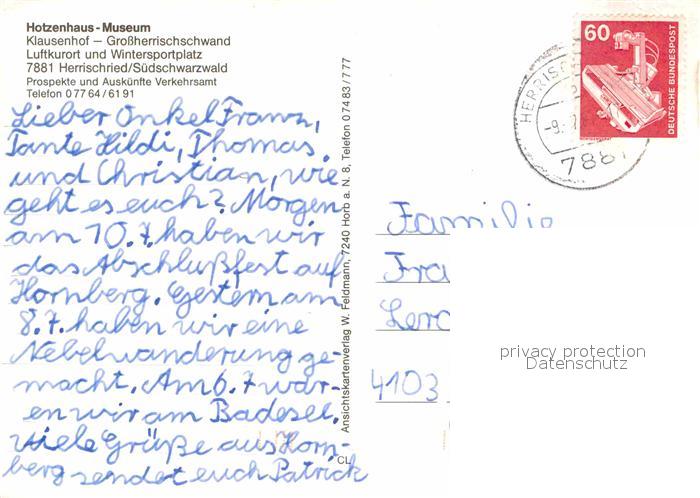 Hotzenhaus - Museum
Klausenhof — Großherrischschwand
Luftkurort und Wintersportplatz
7881 Herrischried/Südschwarzwald
Prospekte und Auskünfte Verkehrsamt
Telefon 0 77 64 / 61 91
Lieber Onkel Franz,
Tante Hildi, Thomas
und Christian, wie
geht es euch? Morgen
am 10.7. haben wir
das Abschlußfest auf
Hornberg. Gestern am
8.7. haben wir eine
Nebelwanderung ge-
macht. Am 6.7 war-
en wir am Badesee.
Viele Grüße aus Horn-
berg sendet euch Patrick
CL
Ansichtskartenverlag W. Feldmann, 7240 Horb a. N. 8, Telefon 0 74 83 / 7 77
60
DEUTSCHE BUNDESPOST
HERRIS
-9.
7881
Familie
Fra
Lerc
4103
privacy protection
Datenschutz